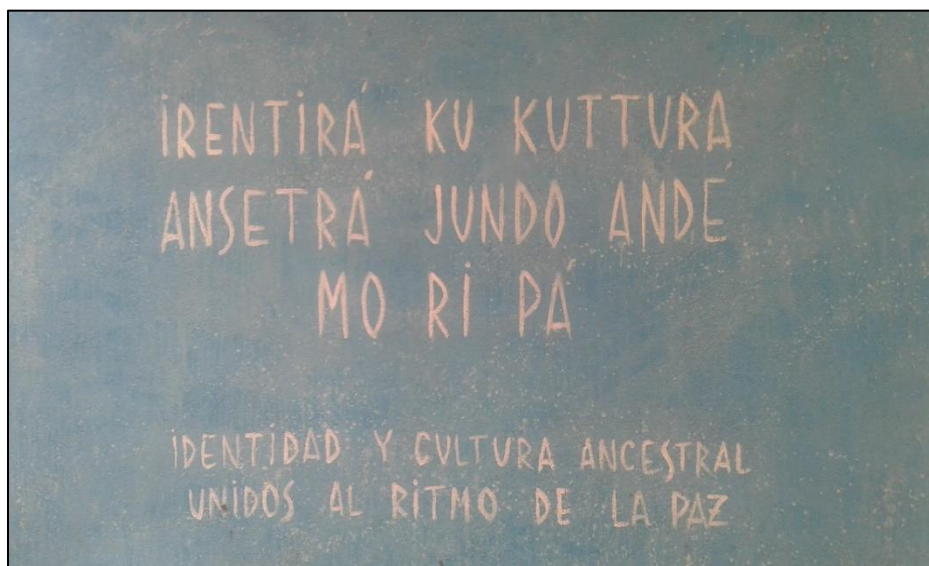 IRENTIRÁ KU KUTTURA
ANSETRÁ JUNDO ANDÉ
MO RI PÁ
IDENTIDAD Y CULTURA ANCESTRAL
UNIDOS AL RITMO DE LA PAZ